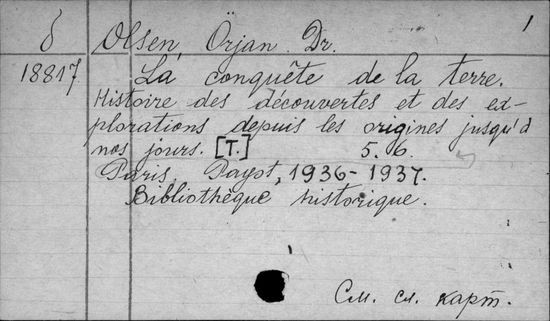 1
δ Olsen, Örjan. Dr.
18817 La conquête de la terre.
Histoire des découvertes et des ex-
plorations depuis les origines jusqu'à
nos jours. [T.] 5. 6.
Paris, Payot, 1936-1937.
Bibliothèque historique.
См. сл. карт.